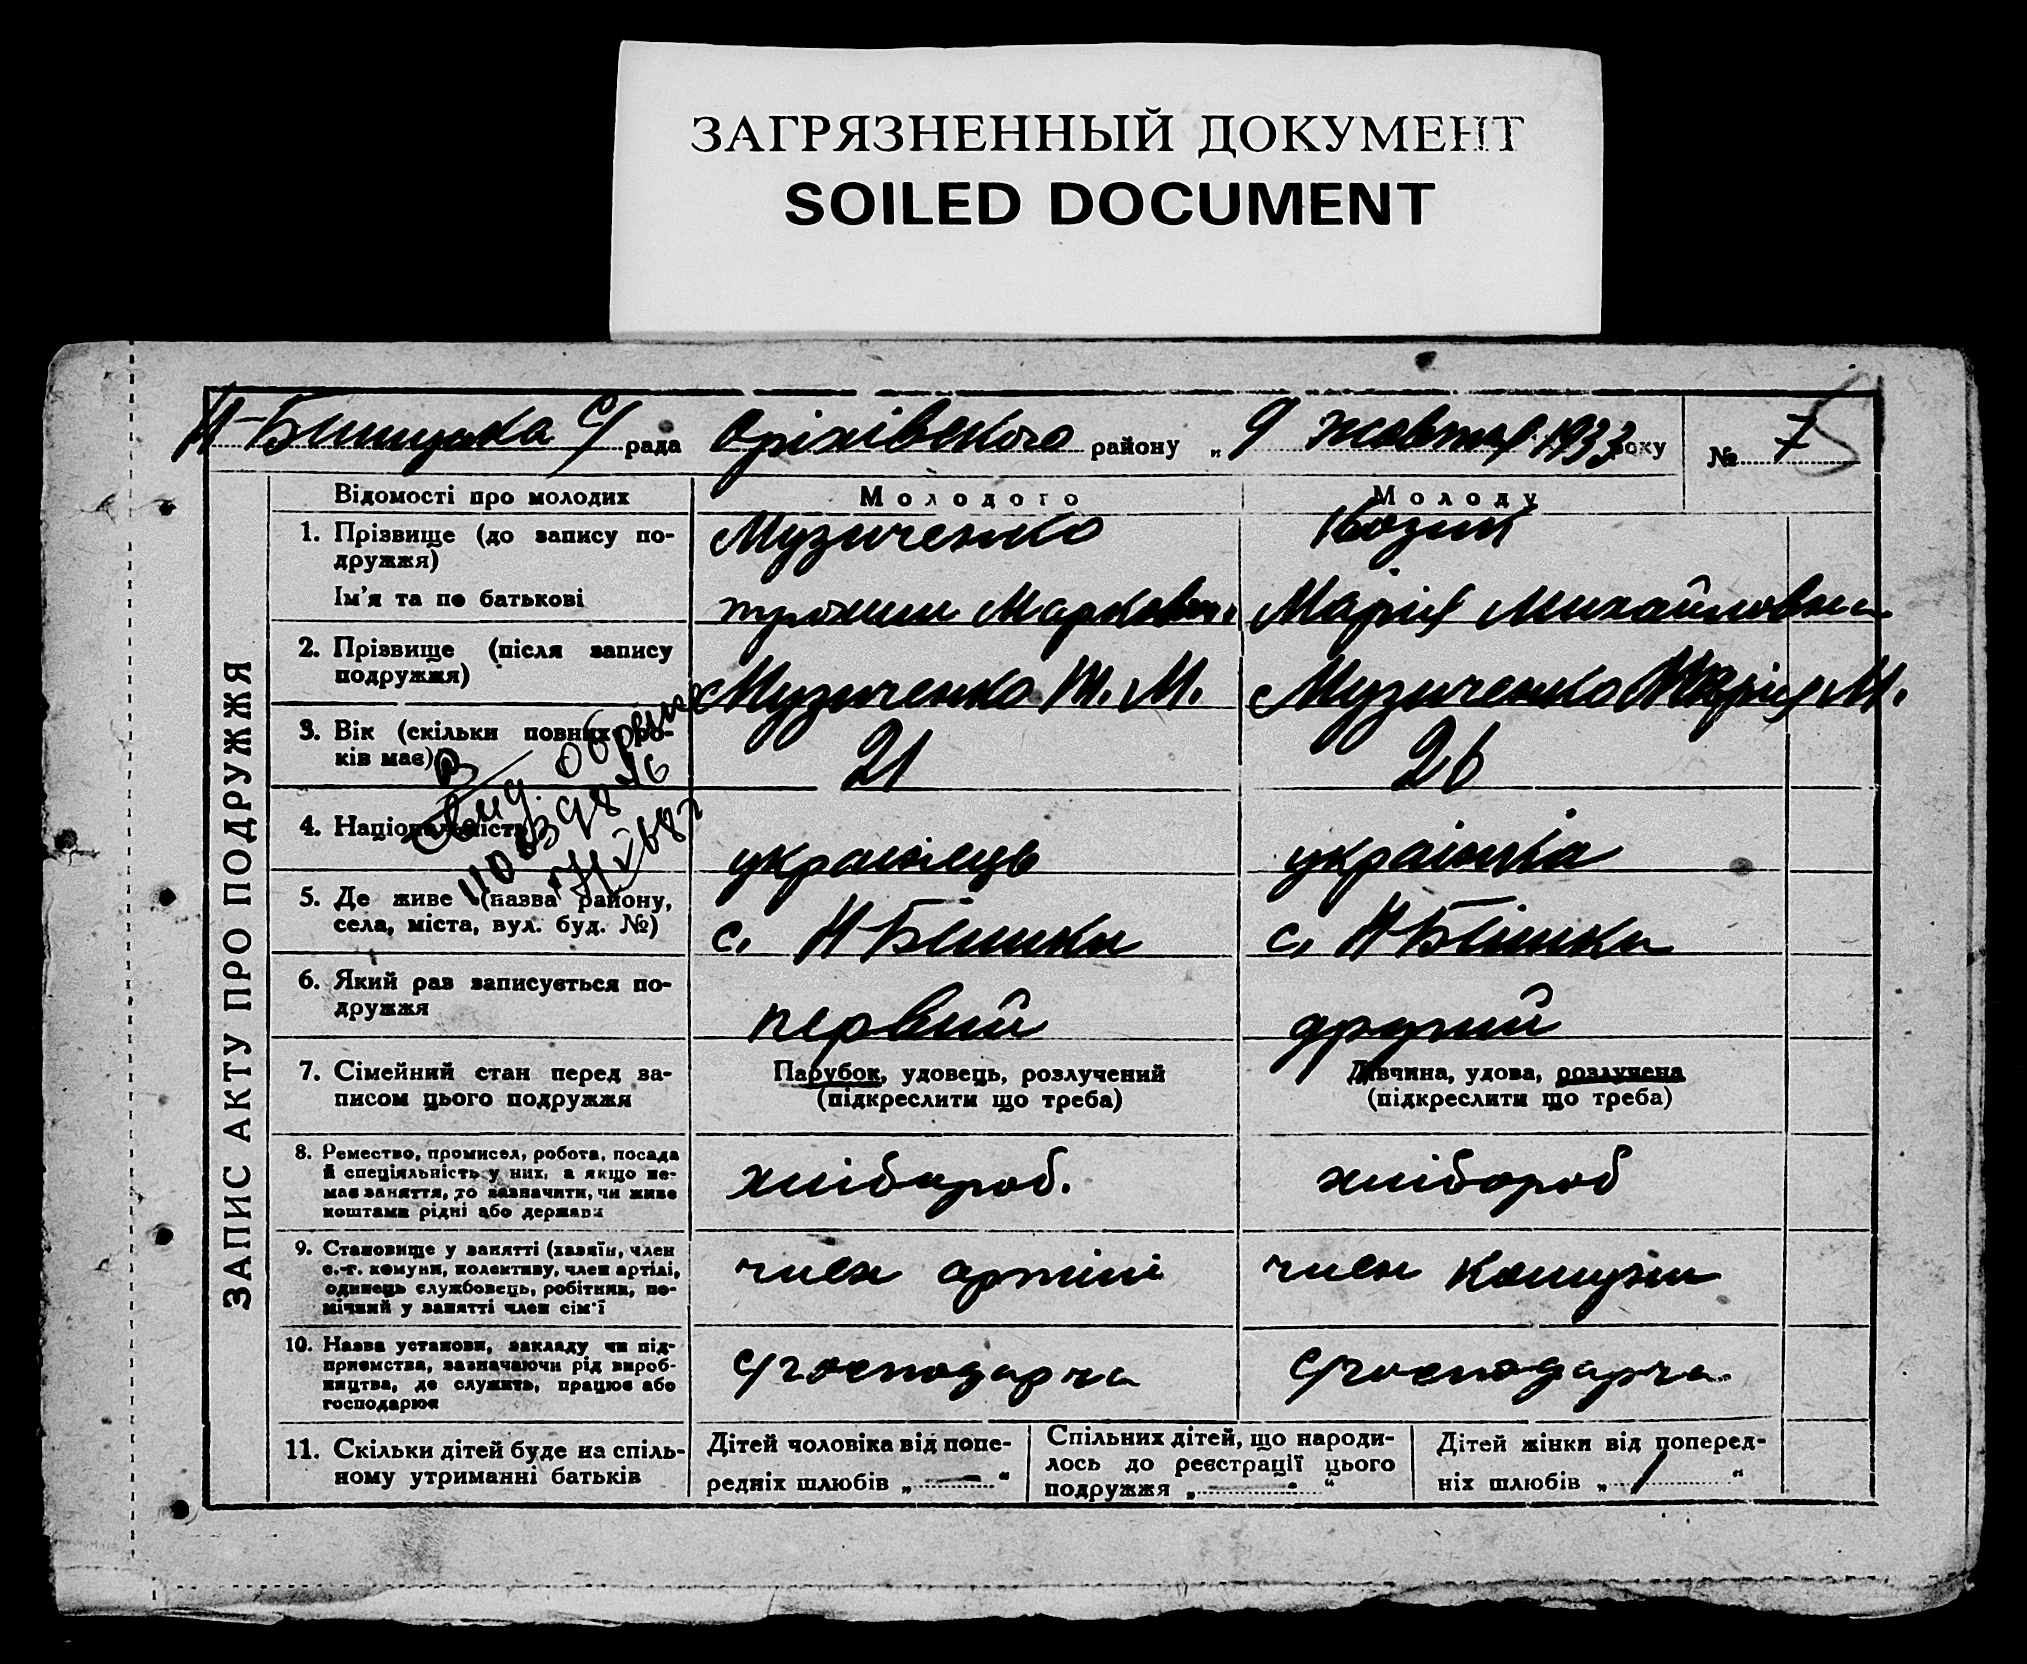 ЗАГРЯЗНЕННЫЙ ДОКУМЕНТ
SOILED DOCUMENT
с/ рада Оріхівського району „9 жовтня 1933 року № 7
ЗАПИС АКТУ ПРО ПОДРУЖЖЯ
Відомості про молодих Молодого Молоду
1. Прізвище (до запису по-
дружжя)
Музиченко
Ім'я та по батькові
Трохим Маркович. Марія Михайловна
2. Прізвище (після запису
подружжя)
Музиченко Т. М. Музиченко Марія М.
3. Вік (скільки повних ро-
ків має)
21 26
4. Національність
українець українка
5. Де живе (назва району,
села, міста, вул. буд. №)
с. Н Білики с. Н Білики
6. Який раз записується по-
дружжя
первий другий
7. Сімейний стан перед за-
писом цього подружжя
Парубок, удовець, розлучений
(підкреслити що треба)
Дівчина, удова, розлучена
(підкреслити що треба)
8. Ремество, промисел, робота, посада
й спеціяльність у них, а якщо не-
має заняття, то зазначити, чи живе
коштами рідні або держави
хлібороб. хлібороб
9. Становище у занятті (хазяїн, член
с.-г. комуни, колективу, член артілі,
одинець службовець, робітник, по-
мічний у занятті член сім'ї
член артілі член комуни
10. Назва установи, закладу чи під-
приємства, зазначаючи рід вироб-
ництва, де служить, працює або
господарює
с/господарча с/господарча
11. Скільки дітей буде на спіль-
ному утриманні батьків
Дітей чоловіка від попе-
редніх шлюбів „ — “
Спільних дітей, що народи-
лось до реєстрації цього
подружжя „ — “
Дітей жінки від поперед-
ніх шлюбів „ 1 “